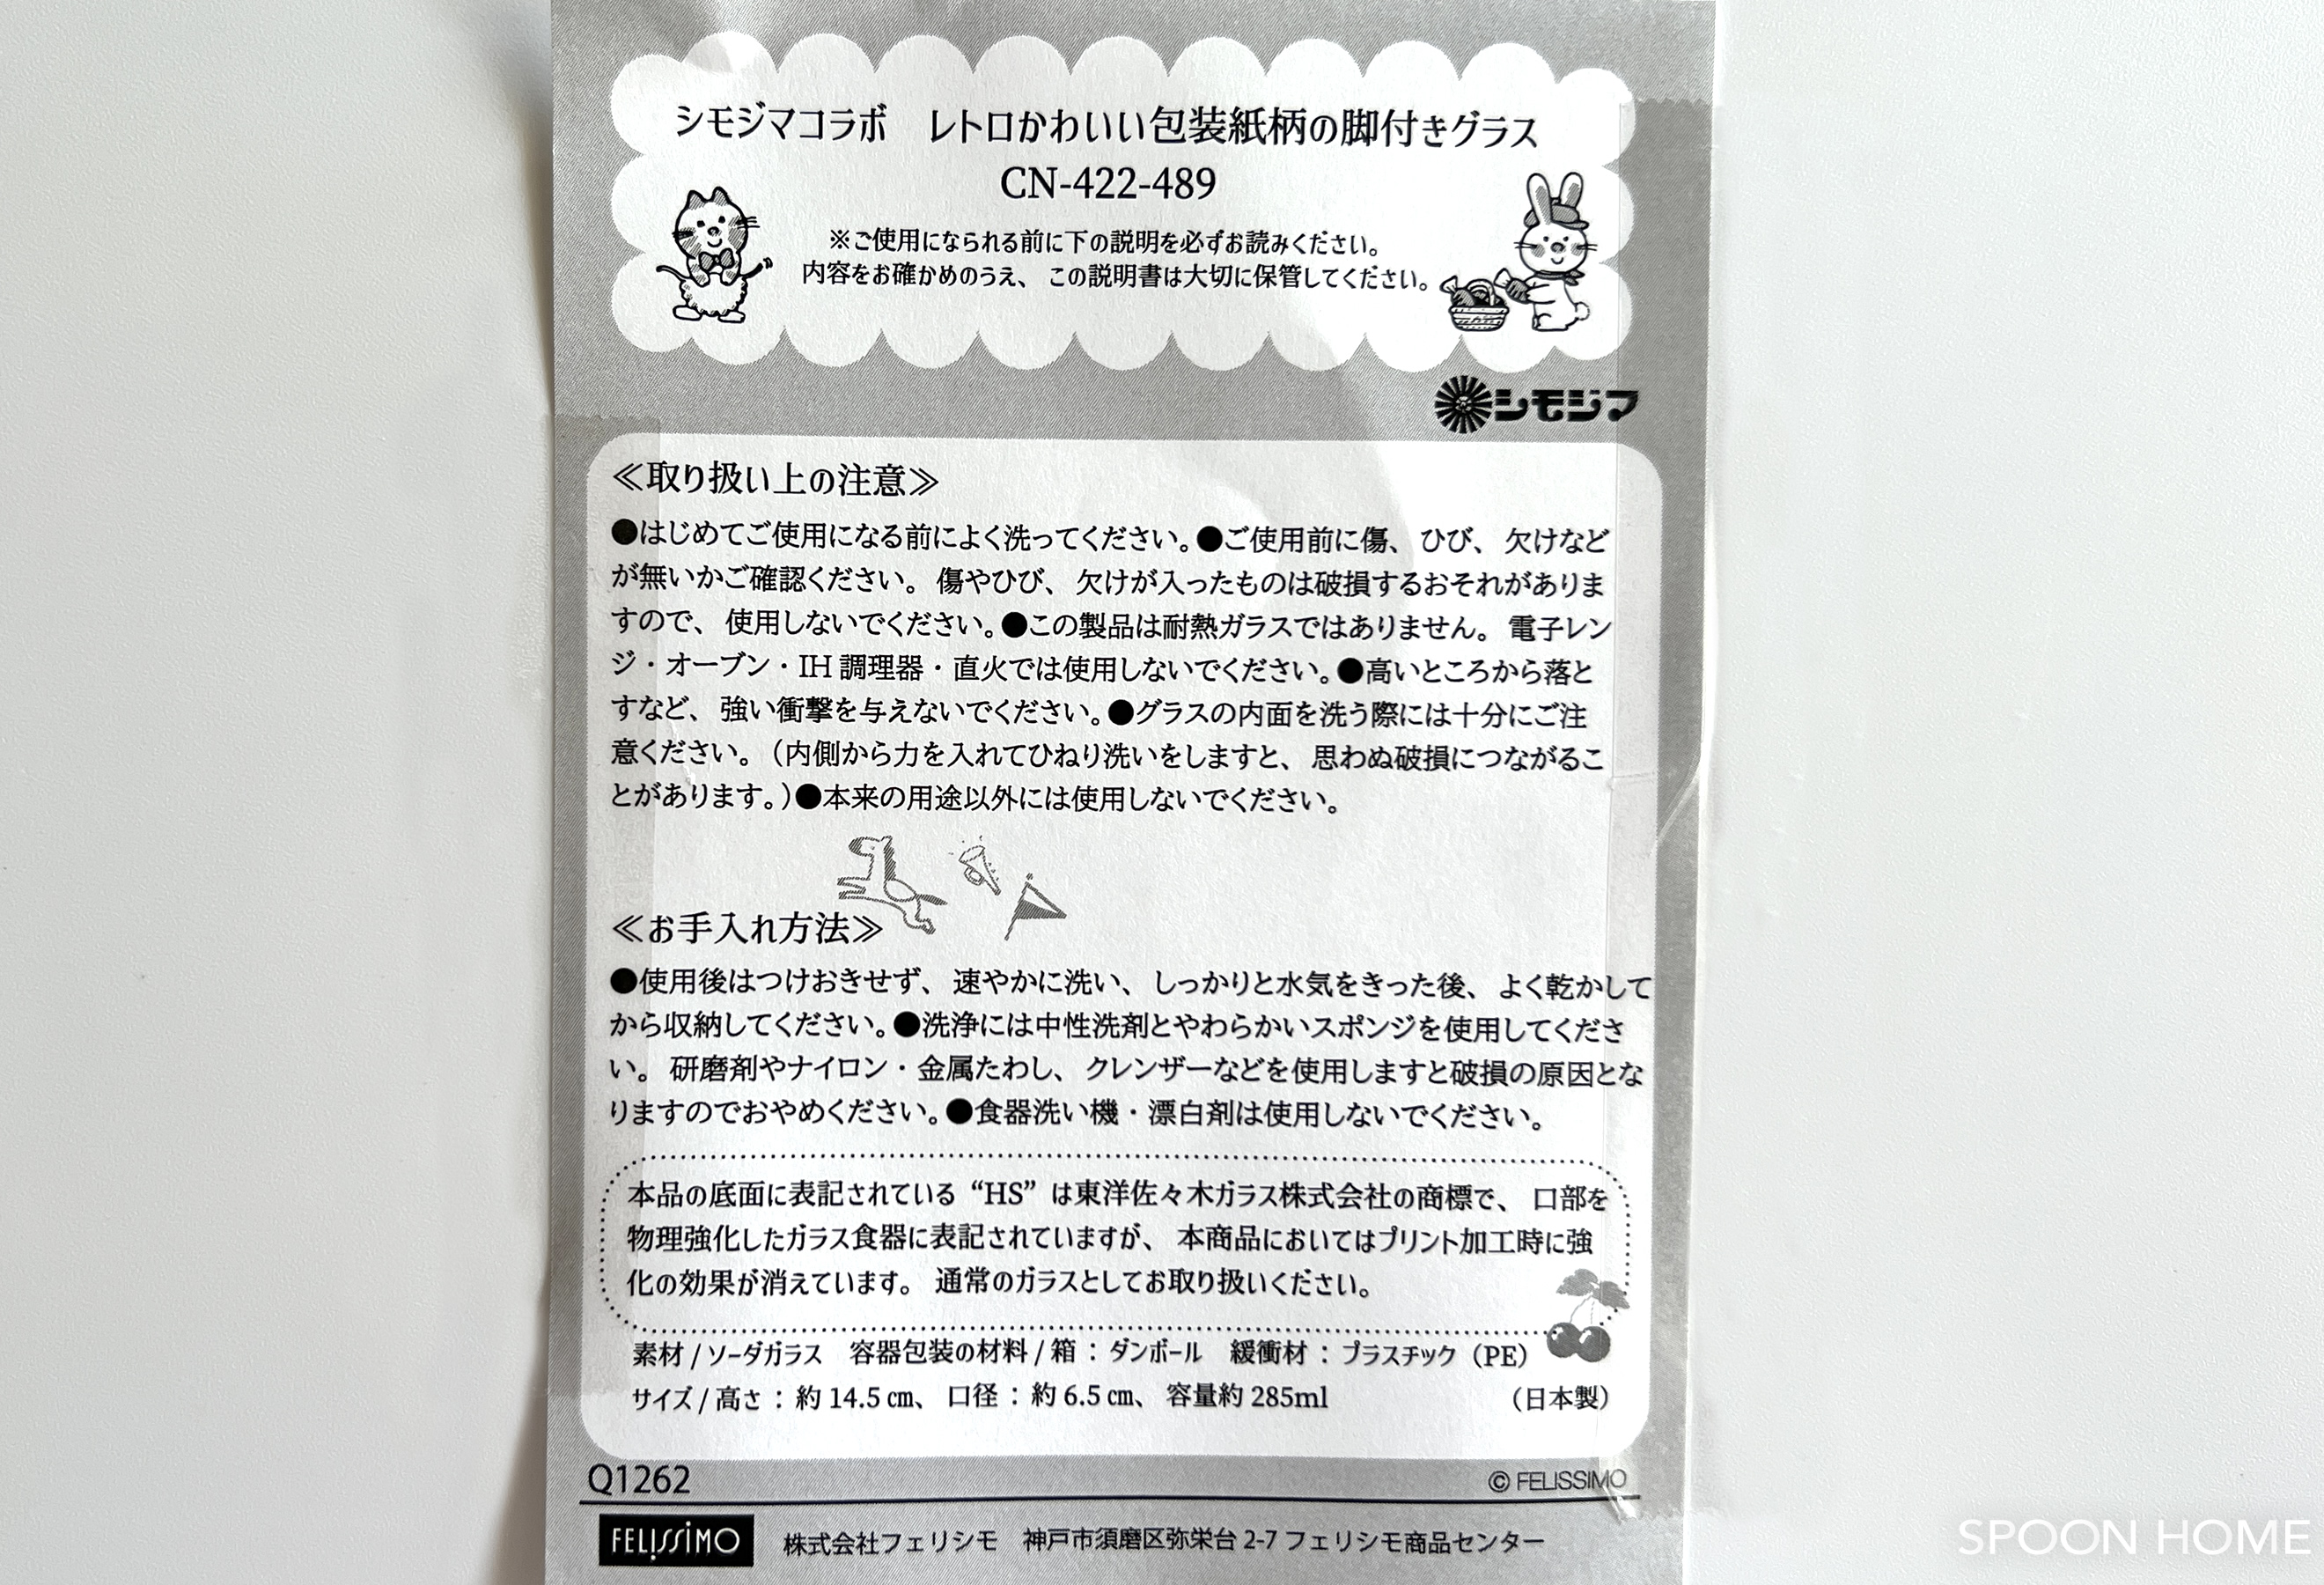 シモジマコラボ　レトロかわいい包装紙柄の脚付きグラス
CN-422-489
※ご使用になられる前に下の説明を必ずお読みください。
内容をお確かめのうえ、この説明書は大切に保管してください。
シモジマ
≪取り扱い上の注意≫
●はじめてご使用になる前によく洗ってください。●ご使用前に傷、ひび、欠けなど
が無いかご確認ください。傷やひび、欠けが入ったものは破損するおそれがありま
すので、使用しないでください。●この製品は耐熱ガラスではありません。電子レン
ジ・オーブン・IH 調理器・直火では使用しないでください。●高いところから落と
すなど、強い衝撃を与えないでください。●グラスの内面を洗う際には十分にご注
意ください。（内側から力を入れてひねり洗いをしますと、思わぬ破損につながるこ
とがあります。）●本来の用途以外には使用しないでください。
≪お手入れ方法≫
●使用後はつけおきせず、速やかに洗い、しっかりと水気をきった後、よく乾かして
から収納してください。●洗浄には中性洗剤とやわらかいスポンジを使用してくださ
い。研磨剤やナイロン・金属たわし、クレンザーなどを使用しますと破損の原因とな
りますのでおやめください。●食器洗い機・漂白剤は使用しないでください。
本品の底面に表記されている“HS”は東洋佐々木ガラス株式会社の商標で、口部を
物理強化したガラス食器に表記されていますが、本商品においてはプリント加工時に強
化の効果が消えています。通常のガラスとしてお取り扱いください。
素材 / ソーダガラス　容器包装の材料 / 箱：ダンボール　緩衝材：プラスチック（PE）
サイズ / 高さ：約 14.5 ㎝、口径：約 6.5 ㎝、容量約 285ml　（日本製）
Q1262
© FELISSIMO
FELISSIMO 株式会社フェリシモ　神戸市須磨区弥栄台 2-7 フェリシモ商品センター
SPOON HOME